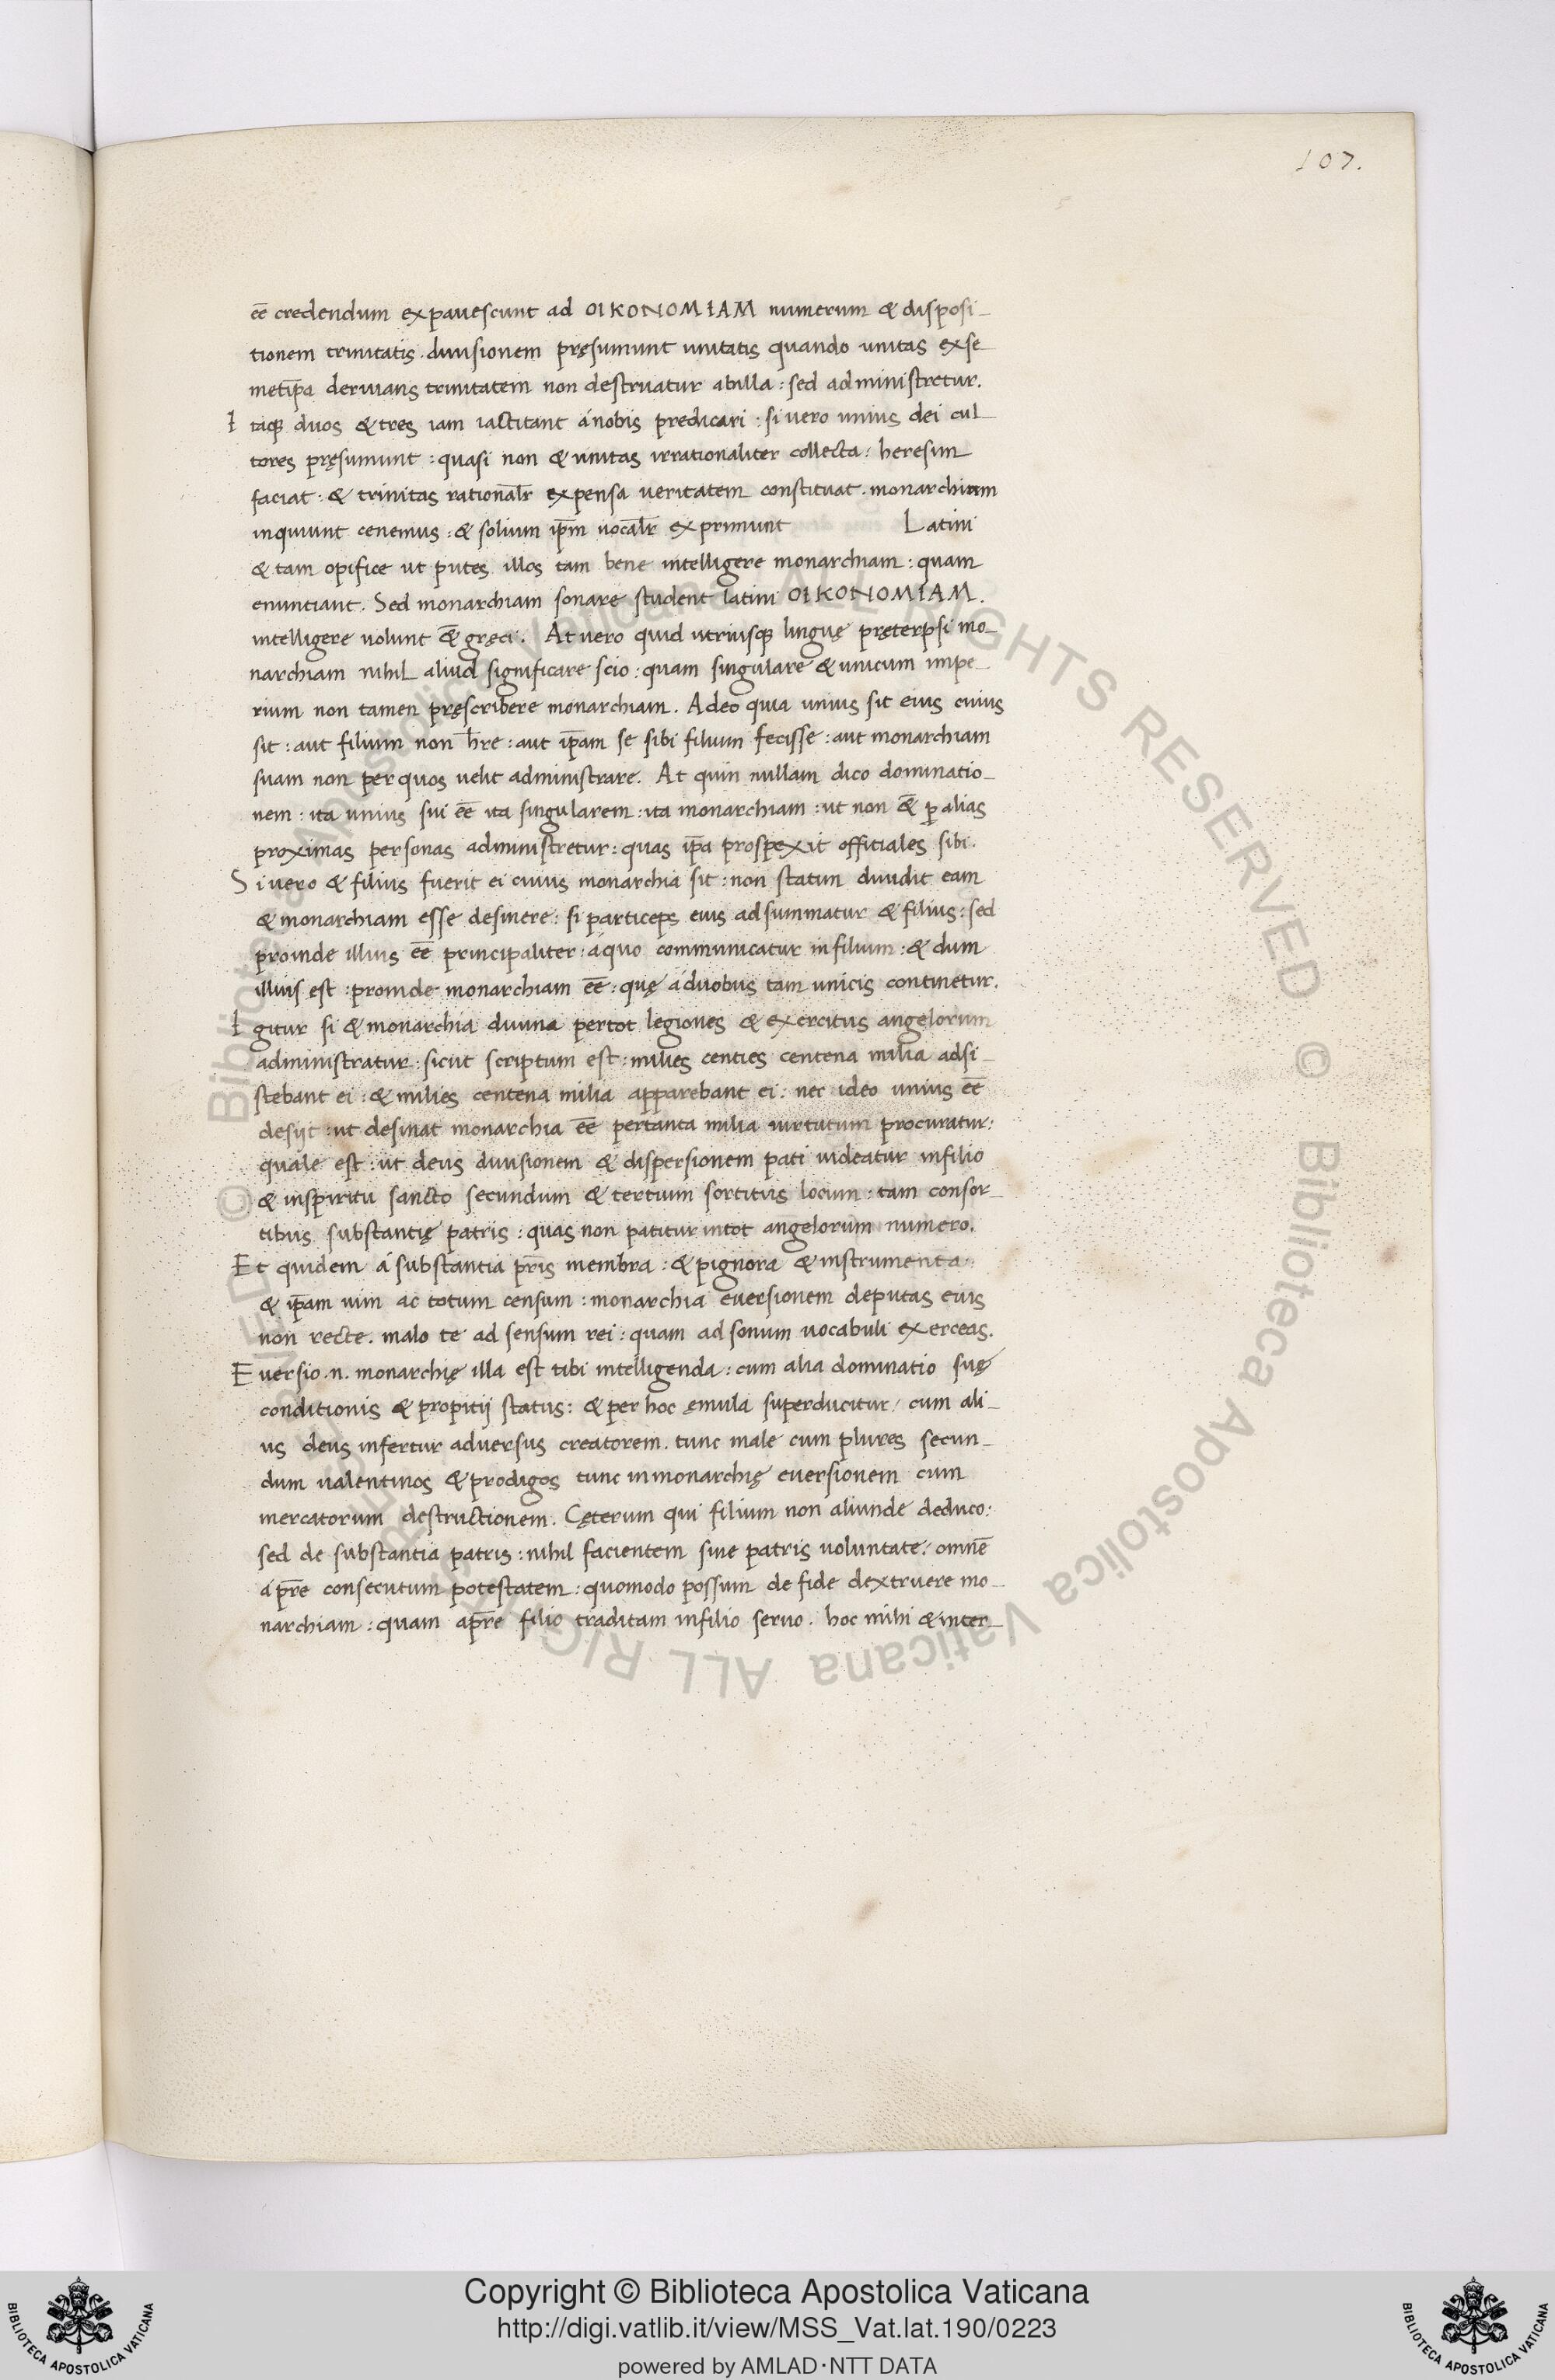 107.
eē credendum expauescunt ad OIKONOMIAM numerum & disposi-
tionem trinitatis. diuisionem pręsumunt unitatis quando unitas exse
metip̄a deriuans trinitatem non destruatur abilla: sed administretur.
Itaqꝫ duos & tres iam iactitant ánobis predicari: si uero unius dei cul-
tores pręsumunt: quasi non & unitas irrationaliter collecta: heresim
faciat: & trinitas rational̄r expensa ueritatem constituat. monarchiam
inquiunt cenemus: & solium ip̄m uocal̄r exprimunt Latini
& tam opifice ut putes illos tam bene intelligere monarchiam: quam
enuntiant. Sed monarchiam sonare student latini OIKONOMIAM.
intelligere uolunt &̄ gręci. At uero quid utriusqꝫ linguę pręterpsi mo-
narchiam nihil aliud significare scio: quam singulare & unicum impe-
rium non tamen pręscribere monarchiam. Adeo quia unius sit eius cuius
sit: aut filium non h̄re: aut ip̄am se sibi filium fecisse: aut monarchiam
suam non per quos uelit administrare. At quin nullam dico dominatio-
nem: ita unius sui eē ita singularem: ita monarchiam: ut non &̄ ꝑ alias
proximas personas administretur: quas ip̄a prospexit officiales sibi.
Si uero & filius fuerit ei cuius monarchia sit: non statim diuidit eam
& monarchiam esse desinere: si particeps eius adsummatur & filius: sed
proinde illius eē principaliter: áquo communicatur infilium: & dum
illius est: proinde monarchiam eē: quę áduobus tam unicis continetur.
Igitur si & monarchia diuina pertot legiones & exercitus angelorum
administratur: sicut scriptum est: milies centies centena milia adsi-
stebant ei: & milies centena milia apparebant ei: nec ideo unius eē
desijt: ut desinat monarchia eē pertanta milia uirtutum procuratur:
quale est: ut deus diuisionem & dispersionem pati uideatur infilio
& inspiritu sancto secundum & tertium sortitus locum: tam consor-
tibus substantię patris: quas non patitur intot angelorum numero.
Et quidem á substantia pr̄is membra: & pignora & instrumenta:
& ip̄am uim ac totum censum: monarchia euersionem deputas euis
non recte. malo te ad sensum rei: quam ad sonum uocabuli exerceas.
Euersio .n. monarchię illa est tibi intelligenda: cum alia dominatio suę
conditionis & propitij status: & per hoc ęmula superducitur/ cum ali-
us deus infertur aduersus creatorem. tunc male cum plures secun-
dum ualentinos & prodigos tunc inmonarchię euersionem cum
mercatorum destructionem. Cęterum qui filium non aliunde deduco:
sed de substantia patris: nihil facientem sine patris uoluntate: omnē
ápr̄e consecutum potestatem: quomodo possum de fide dextruere mo-
narchiam: quam apr̄e filio traditam infilio seruo. hoc mihi & inter-
© Biblioteca Apostolica Vaticana ALL RIGHTS RESERVED © Biblioteca Apostolica Vaticana ALL RIGHTS RESERVED
Copyright © Biblioteca Apostolica Vaticana
http://digi.vatlib.it/view/MSS_Vat.lat.190/0223
powered by AMLAD·NTT DATA
BIBLIOTECA APOSTOLICA VATICANA
BIBLIOTECA APOSTOLICA VATICANA